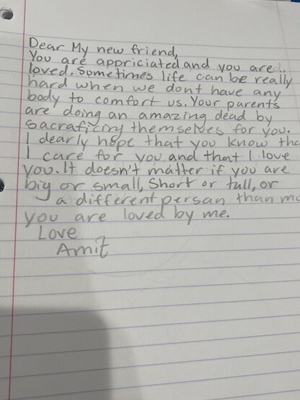 Dear My new friend,
You are appriciated and you are
loved. Sometimes life can be really
hard when we dont have any
body to comfort us. Your parents
are doing an amazing dead by
sacrafizing themselves for you.
I dearly hope that you know tha
I care for you and that I love
you. It doesn't matter if you are
big or small, Short or tall, or
a different persan than me
you are loved by me.
Love
Amit